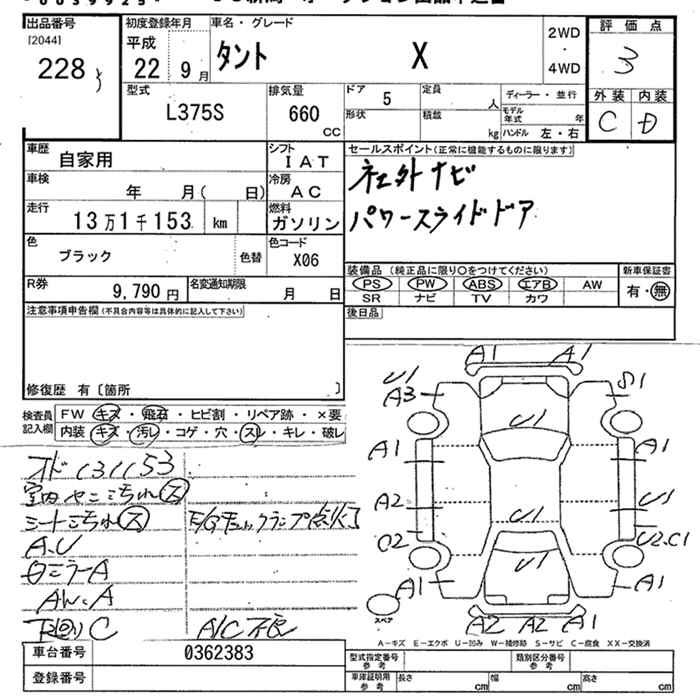 出品番号
[2044]
228
初度登録年月
平成
22 9月
車名・グレード
タント X
2WD
・
4WD
評価点
3
外装 内装
C D
型式
L375S
排気量
660
CC
ドア 5
形状
定員
人
積載
kg
ディーラー・並行
モデル年式 年
ハンドル 左・右
車歴
自家用
シフト
IAT
車検
年 月( 日)
冷房
AC
走行
13万1千153 km
燃料
ガソリン
色
ブラック
色替
色コード
X06
R券
9,790 円
名変通知期限
月 日
セールスポイント(正常に機能するものに限ります)
社外ナビ
パワースライドドア
装備品(純正品に限り○をつけてください)
PS PW ABS エアB AW
SR ナビ TV カワ
新車保証書
有・無
後日品
注意事項申告欄(不具合内容等は具体的に記入して下さい)
修復歴 有〔箇所 〕
検査員
記入欄
FW キズ・飛石・ヒビ割・リペア跡・×要
内装 キズ・汚レ・コゲ・穴・スレ・キレ・破レ
室内ヤニ汚れ ス
シート汚れ ス
E/Gチェックランプ点灯
A.U
ロミラーA
AW.A
下廻りC
A/C不良
A1 A1
U1
A3
S1
U1
A1
A1
A2
U1
U1
C2
U2.C1
U1
A1
A1
A2 A2 A1
スペア
A-キズ E-エクボ U-凹み W-補修跡 S-サビ C-腐食 XX-交換済
車台番号
0362383
登録番号
型式指定番号
参考
類別区分番号
参考
車庫証明用
参考
長さ cm
幅 cm
高さ cm